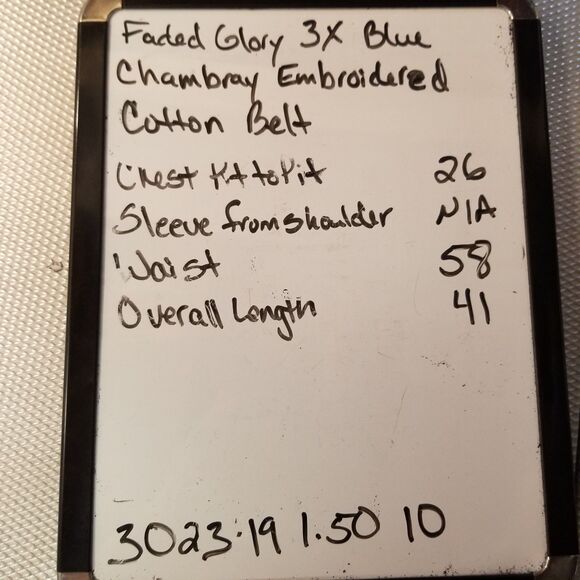 Faded Glory 3X Blue
Chambray Embroidered
Cotton Belt
Chest Pit to Pit 26
Sleeve from shoulder N/A
Waist 58
Overall Length 41
3023.19 1.50 10